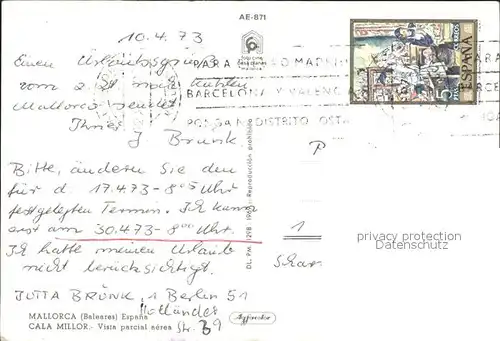 AE-871
10.4.73
Einen Urlaubsgruß
vom z. Zt.
Mallorca sendet
Ihnen
J. Brünk.
PARA MADRID
BARCELONA Y VALENCIA
PONGA DISTRITO POSTAL
ESPAÑA
CORREOS
5 PTAS
Bitte, ändern Sie den
für d. 17.4.73 - 8⁰⁵ Uhr
festgelegten Termin. Ich kann
erst am 30.4.73 - 8⁰⁰ Uhr.
Ich hatte meinen Urlaub
nicht berücksichtigt.
JUTTA BRÜNK, 1 Berlin 51
Holländer
Str. 39
P
1
Skar.
privacy protection
Datenschutz
Reproducción prohibida
MALLORCA (Baleares) España
CALA MILLOR.- Vista parcial aérea